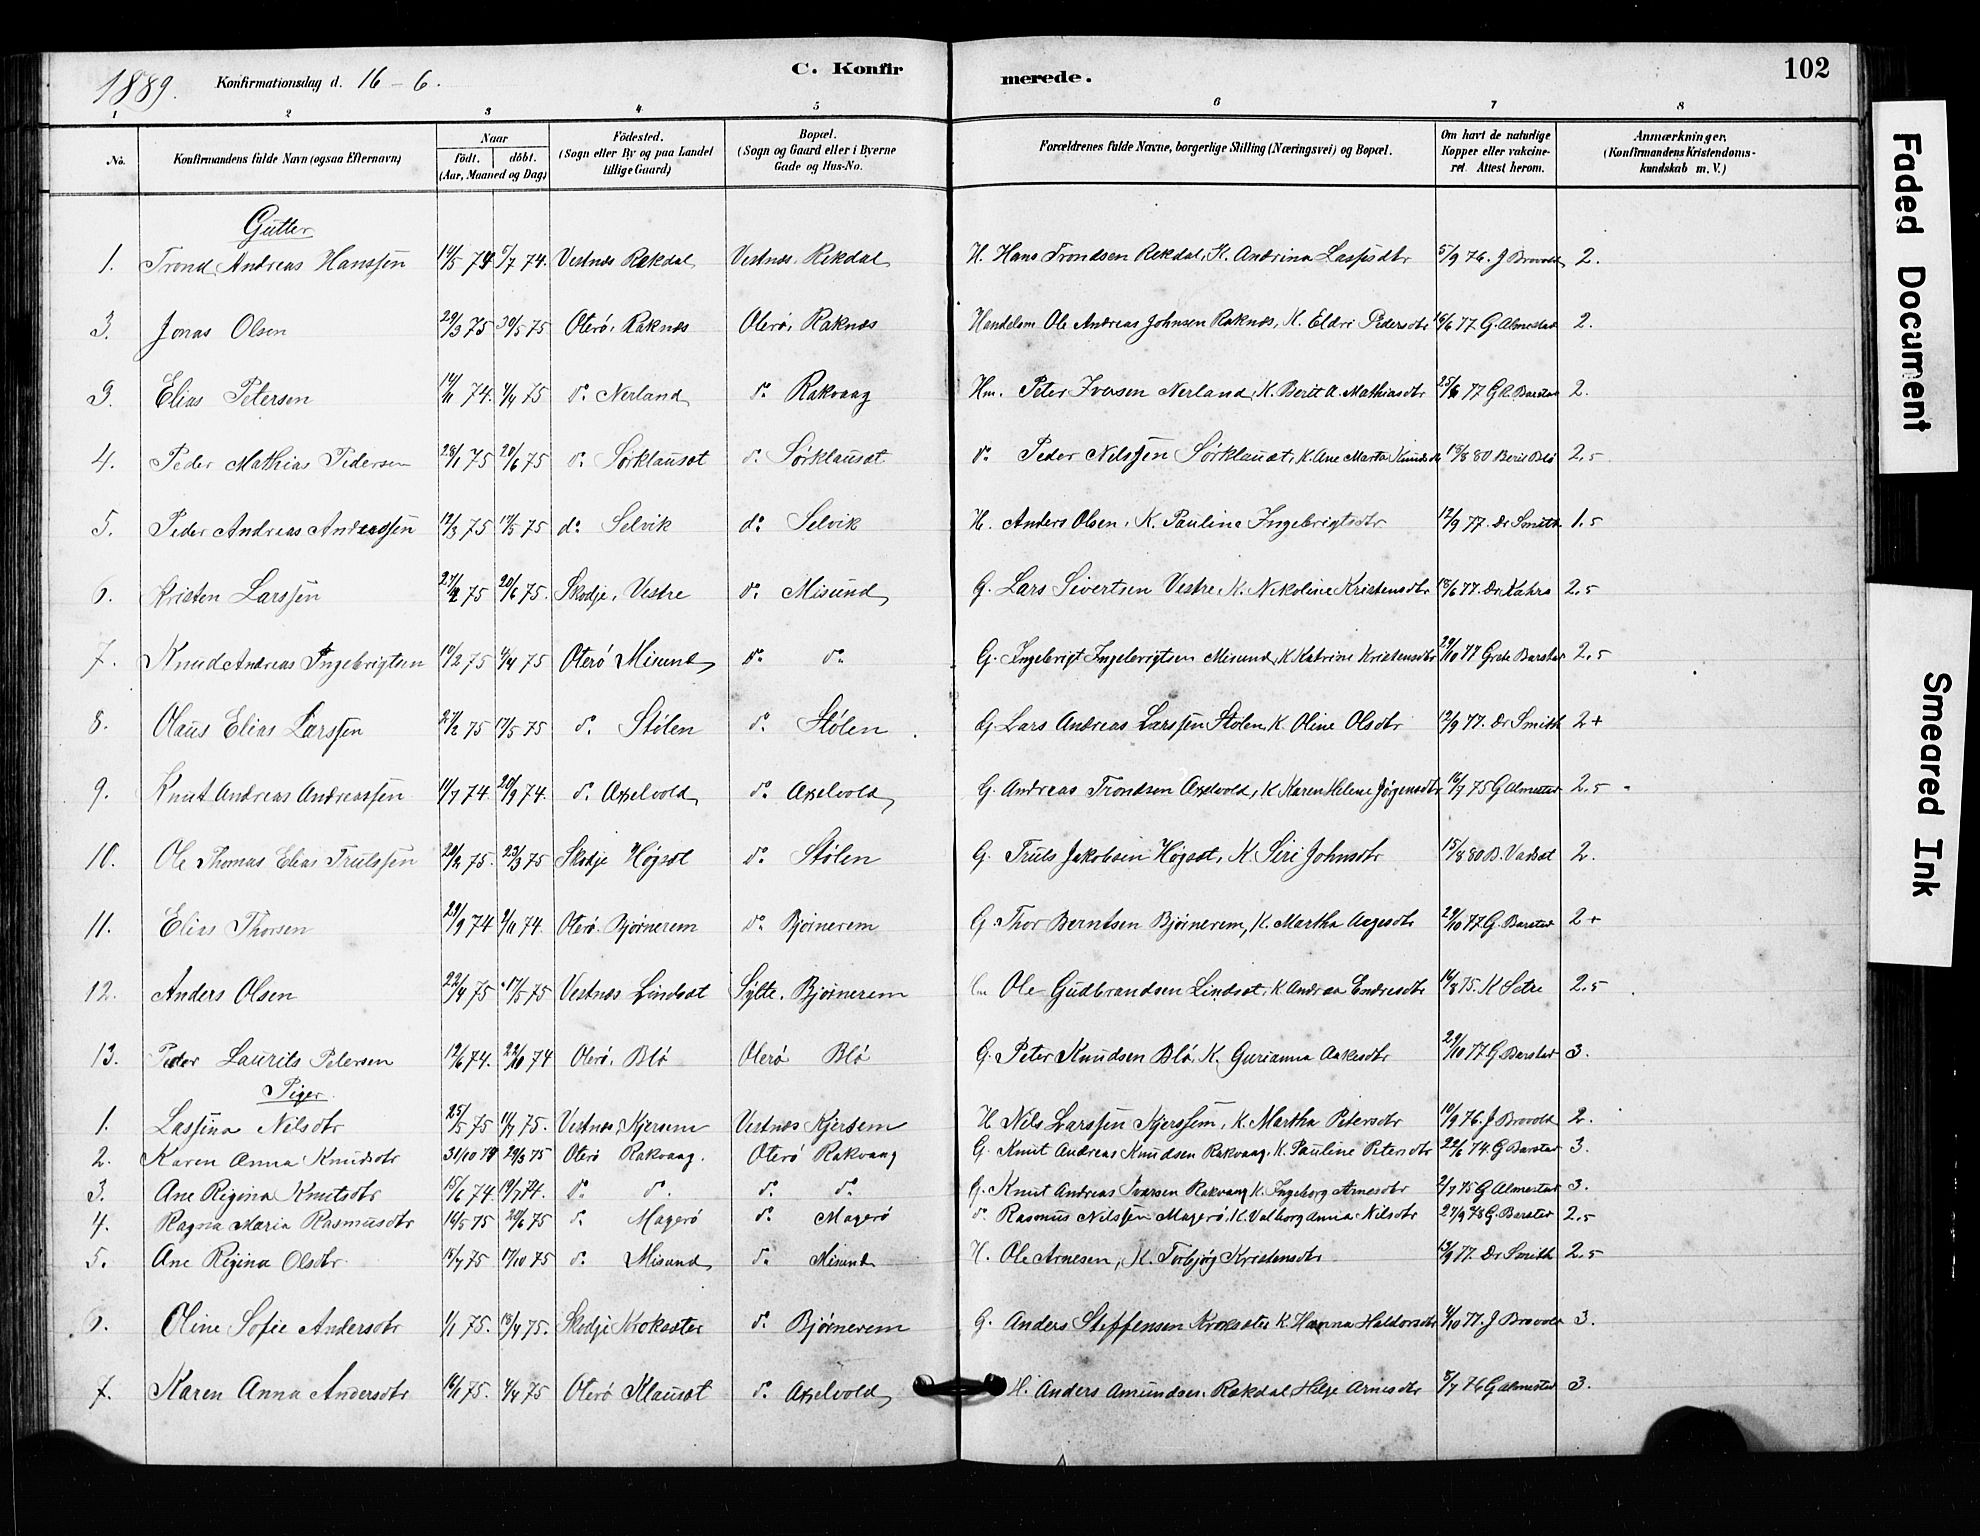 1889. Konfirmationsdag d. 16 - 6. C. Konfir merede. 102
1 2 3 4 5 6 7 8
No. Konfirmandens fulde Navn (ogsaa Efternavn) Naar født. døbt. (Aar, Maaned og Dag) Födested. (Sogn eller By og paa Landet tillige Gaard) Bopæl. (Sogn og Gaard eller i Byerne Gade og Hus-No. Forældrenes fulde Navne, borgerlige Stilling (Næringsvei) og Bopæl. Om havt de naturlige Kopper eller vakcineret. Attest herom. Anmærkninger. (Konfirmandens Kristendomskundskab m. V.)
Gutter
1. Trond Andreas Hanssen 14/5 74 5/7 74. Vestnæs Rekdal Vestnæs Rekdal H. Hans Trondsen Rekdal, K. Andrina Lassesdtr 5/9 76. J Brovold 2.
3. Jonas Olsen 29/3 75 30/5 75 Oterö, Raknæs Oterö, Raknæs Handelsm Ole Andreas Johnsen Raknæs, K. Eldri Pedersdtr 16/6 77 G. Almestad 2.
3. Elias Petersen 14/11 74. 4/4 75 do Nerland do Rakvaag Hm. Peter Iversen Nerland, K. Berit A. Mathiasdtr 25/6 77 G R. Barstad 2.
4. Peder Mathias Pedersen 28/1 75 20/6 75 do Sörklauset do Sörklauset do Peder Nilssen Sörklauset, K. Ane Marta Knudsdtr 13/8 80 Berit Blö 2,5
5. Peder Andreas Anderssen 12/3 75 17/5 75 do Selvik do Selvik H. Anders Olsen, K. Pauline Ingebrigtsdtr 12/9 77. Dr Smith 1.5
6. Kristen Larssen 27/2 75 20/6 75. Skodje, Vestre do Misund G. Lars Sivertsen Vestre, K. Nikoline Kristensdtr 13/6 77. Dr Kahrs 2,5
7. Knud Andreas Ingebrigtsen 10/2 75 4/4 75 Oterö Misund do do G. Ingebrigt Ingebrigtsen Misund, K Katrine Kristensdtr 29/10 77 Grete Barstad 2,5
8. Olaus Elias Larssen 27/2 75 17/5 75 do Stölen do Stölen G. Lars Andreas Larssen Stölen, K. Oline Olsdtr 12/9 77. Dr Smith 2+
9. Knut Andreas Andreassen 11/7 74. 20/9 74. do Axelvold do Axelvold G. Andreas Trondsen Axelvold, K Karen Helene Jörgensdtr 16/7 75 G Almestad 2,5
10. Ole Thomas Elias Trulssen 20/2 75. 23/3 75 Skodje Högset do Stölen G. Truls Jakobsen Högset, K. Siri Johnsdtr 15/8 80 B. Vadset 2.
11. Elias Thorsen 29/9 74 1/11 74. Oterö. Björnerem do Björnerem G. Thor Berntsen Björnerem, K. Martha Aagesdtr 29/10 77 G. Barstad 2+
12. Anders Olsen 22/4 75 17/5 75 Vestnæs Lindset Sylte. Björnerem Ole Gudbrandsen Lindset, K Andrea Endresdtr 14/8 75. K Setre 2,5
13. Peder Laurits Petersen 12/6 74. 22/10 74 Oterö, Blö Oterö Blö G. Peter Knudsen Blö, K. Gurianna Aakesdtr 29/10 77 G Barstad 3.
Piger
1. Lassina Nilsdtr 25/5 75 11/7 75. Vestnæs, Kjersem Vestnæs Kjersem H Nils Larssen Kjerssem, K. Martha Petersdtr 10/9 76. J Brovold 2.
2. Karen Anna Knudsdtr 31/10 74 29/3 75 Oterö Rakvaag. Oterö Rakvaag G. Knut Andreas Knudsen Rakvaag, K. Pauline Petersdtr 22/6 74. G Barstad 3.
3. Ane Regina Knutsdtr 15/6 74. 19/7 74. do do do do G. Knut Andreas Iversen Rakvaag K. Ingeborg Arnesdtr 2/7 75 G Almestad 3.
4. Ragna Maria Rasmusdtr 14/5 75 20/6 75 do Magerö do Magerö do Rasmus Nilssen Magerö, K. Valborg Anna Nilsdtr 27/9 78 G. Barstad 2,5
5. Ane Regina Olsdtr 15/7 75 17/10 75 do Misund do Misund H. Ole Arnesen, K. Torbjörg Kristensdtr 13/9 77. Dr Smith 2,5
6. Oline Sofie Andersdtr 1/1 75. 13/4 75. Skodje Kroksæter do Björnerem G. Anders Steffensen Kroksæter K. Hanna Haldorsdtr 4/10 77. J Brovold 3.
7. Karen Anna Andersdtr 16/1 75. 4/4 75 Oterö Klauset do Axelvold H. Anders Amundsen Rekdal Helge Arnesdtr 8/7 76 G Almestad 3.
Faded Document
Smeared Ink